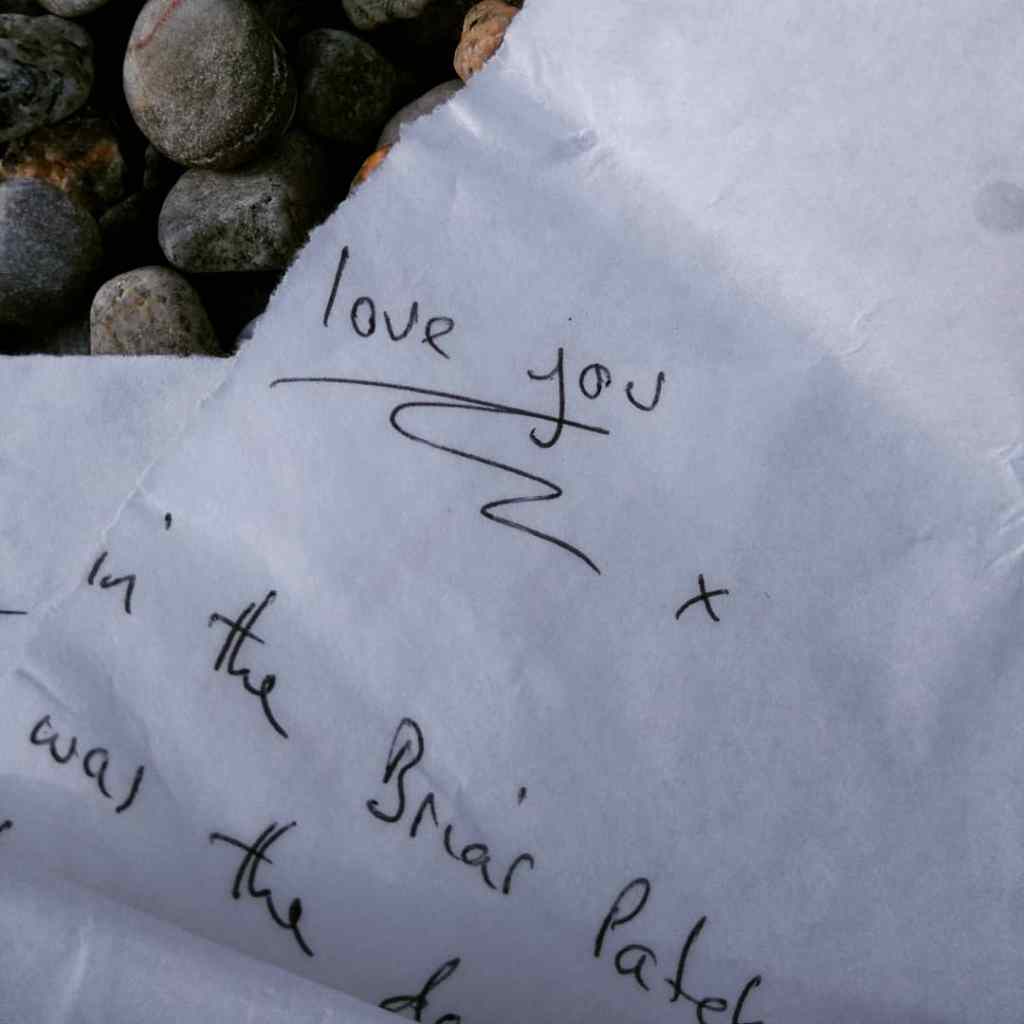 love you
x
in the Briar Patch
was the